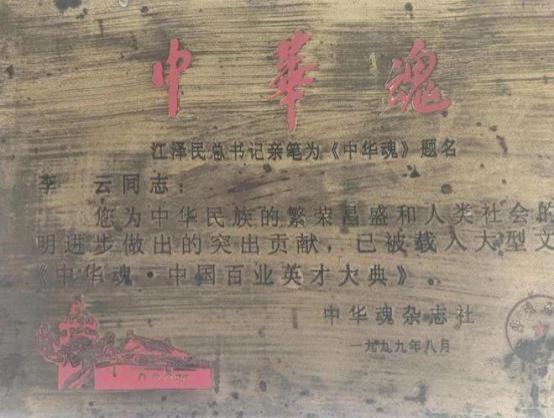 中華魂
江泽民总书记亲笔为《中华魂》题名
李 云同志：
您为中华民族的繁荣昌盛和人类社会的
明进步做出的突出贡献，已被载入大型文
《中华魂·中国百业英才大典》。
中华魂杂志社
一九九九年八月